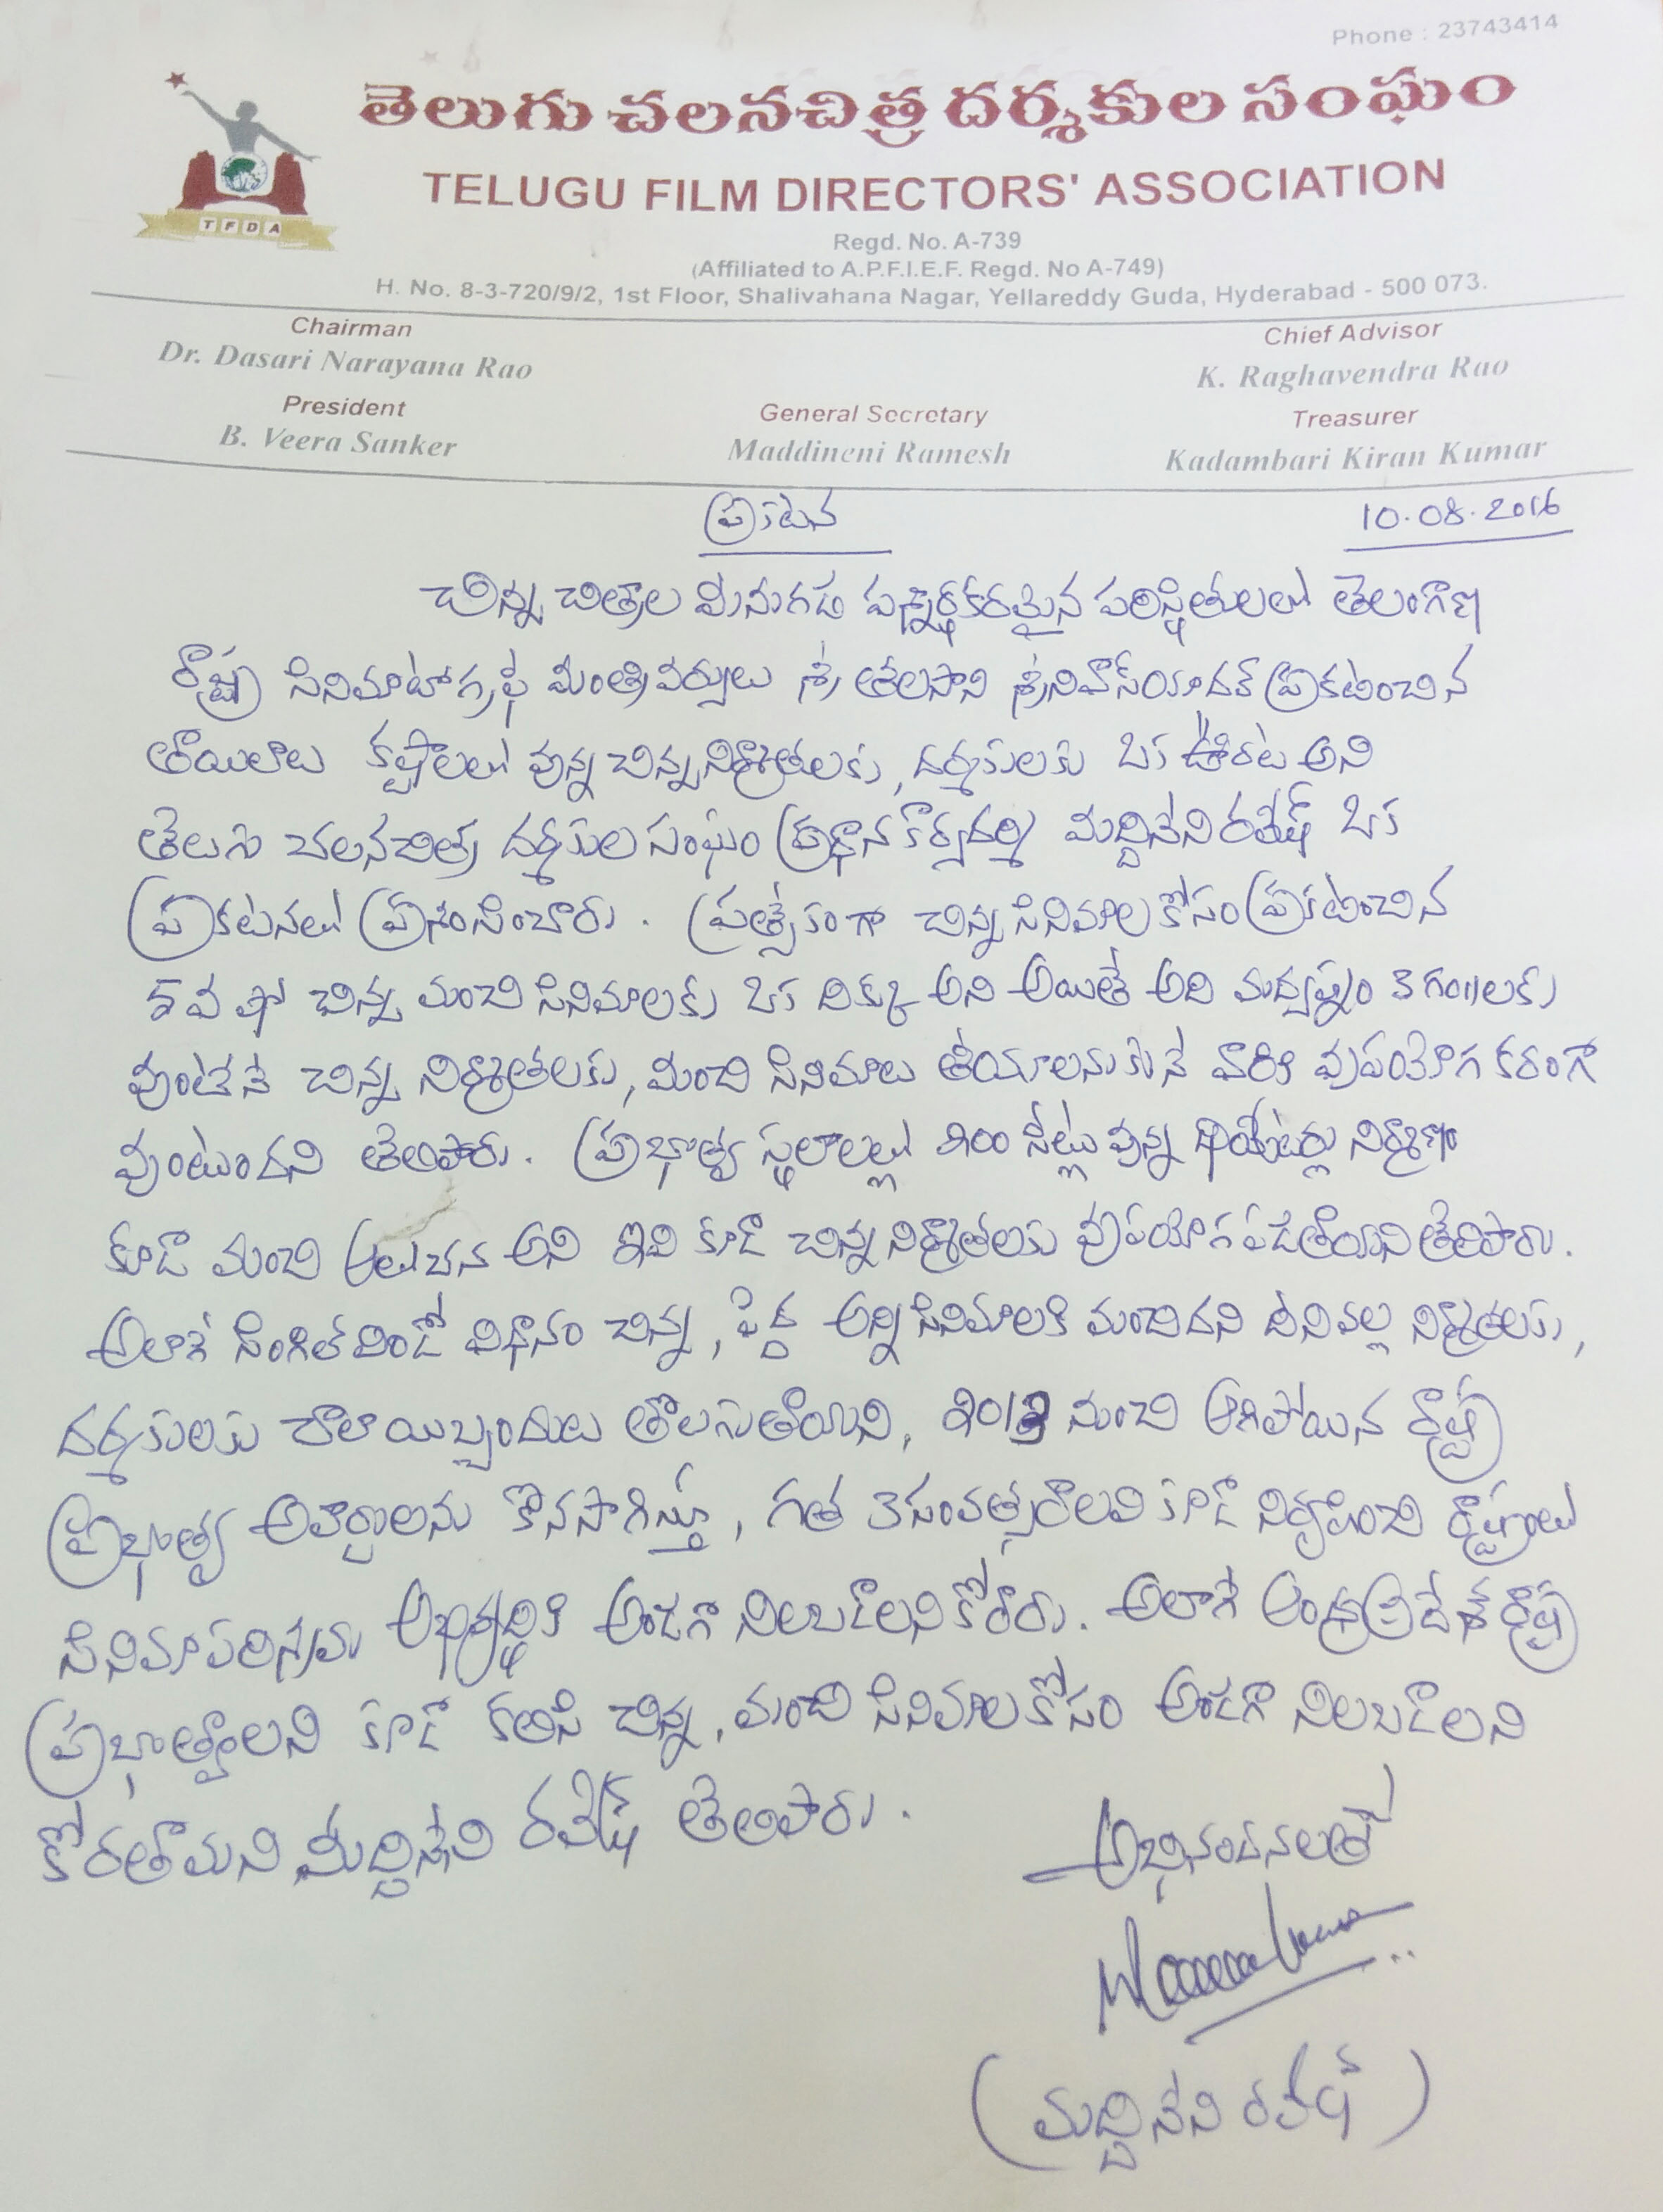 Phone : 23743414
తెలుగు చలనచిత్ర దర్శకుల సంఘం
TELUGU FILM DIRECTORS' ASSOCIATION
TFDA
Regd. No. A-739
(Affiliated to A.P.F.I.E.F. Regd. No A-749)
H. No. 8-3-720/9/2, 1st Floor, Shalivahana Nagar, Yellareddy Guda, Hyderabad - 500 073.
Chairman
Dr. Dasari Narayana Rao
Chief Advisor
K. Raghavendra Rao
President
B. Veera Sanker
General Secretary
Maddineni Ramesh
Treasurer
Kadambari Kiran Kumar
ప్రకటన 10.08.2016
చిన్న చిత్రాల మనుగడ ప్రశ్నార్థకరమైన పరిస్థితులలో తెలంగాణ
రాష్ట్ర సినిమాటోగ్రఫీ మంత్రివర్యులు శ్రీ తలసాని శ్రీనివాస్ యాదవ్ ప్రకటించిన
తాయిలాలు కష్టాలలో వున్న చిన్న నిర్మాతలకు, దర్శకులకు ఒక ఊరట అని
తెలుగు చలనచిత్ర దర్శకుల సంఘం ప్రధాన కార్యదర్శి మద్దినేని రమేష్ ఒక
ప్రకటనలో ప్రశంసించారు. ప్రత్యేకంగా చిన్న సినిమాల కోసం ప్రకటించిన
5వ షో చిన్న మంచి సినిమాలకు ఒక దిక్కు అని అయితే అది మధ్యాహ్నం 3 గం॥లకు
వుంటేనే చిన్న నిర్మాతలకు, మంచి సినిమాలు తీయాలనుకునే వారికి వుపయోగకరంగా
వుంటుందని తెలిపారు. ప్రభుత్వ స్థలాలల్లో 200 సీట్లు వున్న థియేటర్లు నిర్మాణం
కూడా మంచి ఆలోచన అని ఇవి కూడా చిన్న నిర్మాతలకు వుపయోగపడతాయని తెలిపారు.
అలాగే సింగిల్ విండో విధానం చిన్న, పెద్ద అన్ని సినిమాలకి మంచిదని దీనివల్ల నిర్మాతలకు,
దర్శకులకు చాలా యిబ్బందులు తొలగుతాయని, 2013 నుంచి ఆగిపోయిన రాష్ట్ర
ప్రభుత్వ అవార్డులను కొనసాగిస్తూ, గత 3 సంవత్సరాలవి కూడా నిర్వహించి
సినిమా పరిశ్రమ అభివృద్ధికి అండగా నిలబడాలని కోరారు. అలాగే ఆంధ్రప్రదేశ్ రాష్ట్ర
ప్రభుత్వాలని కూడా కలిసి చిన్న, మంచి సినిమాల కోసం అండగా నిలబడాలని
కోరతామని మద్దినేని రమేష్ తెలిపారు.
అభినందనలతో
(మద్దినేని రమేష్)